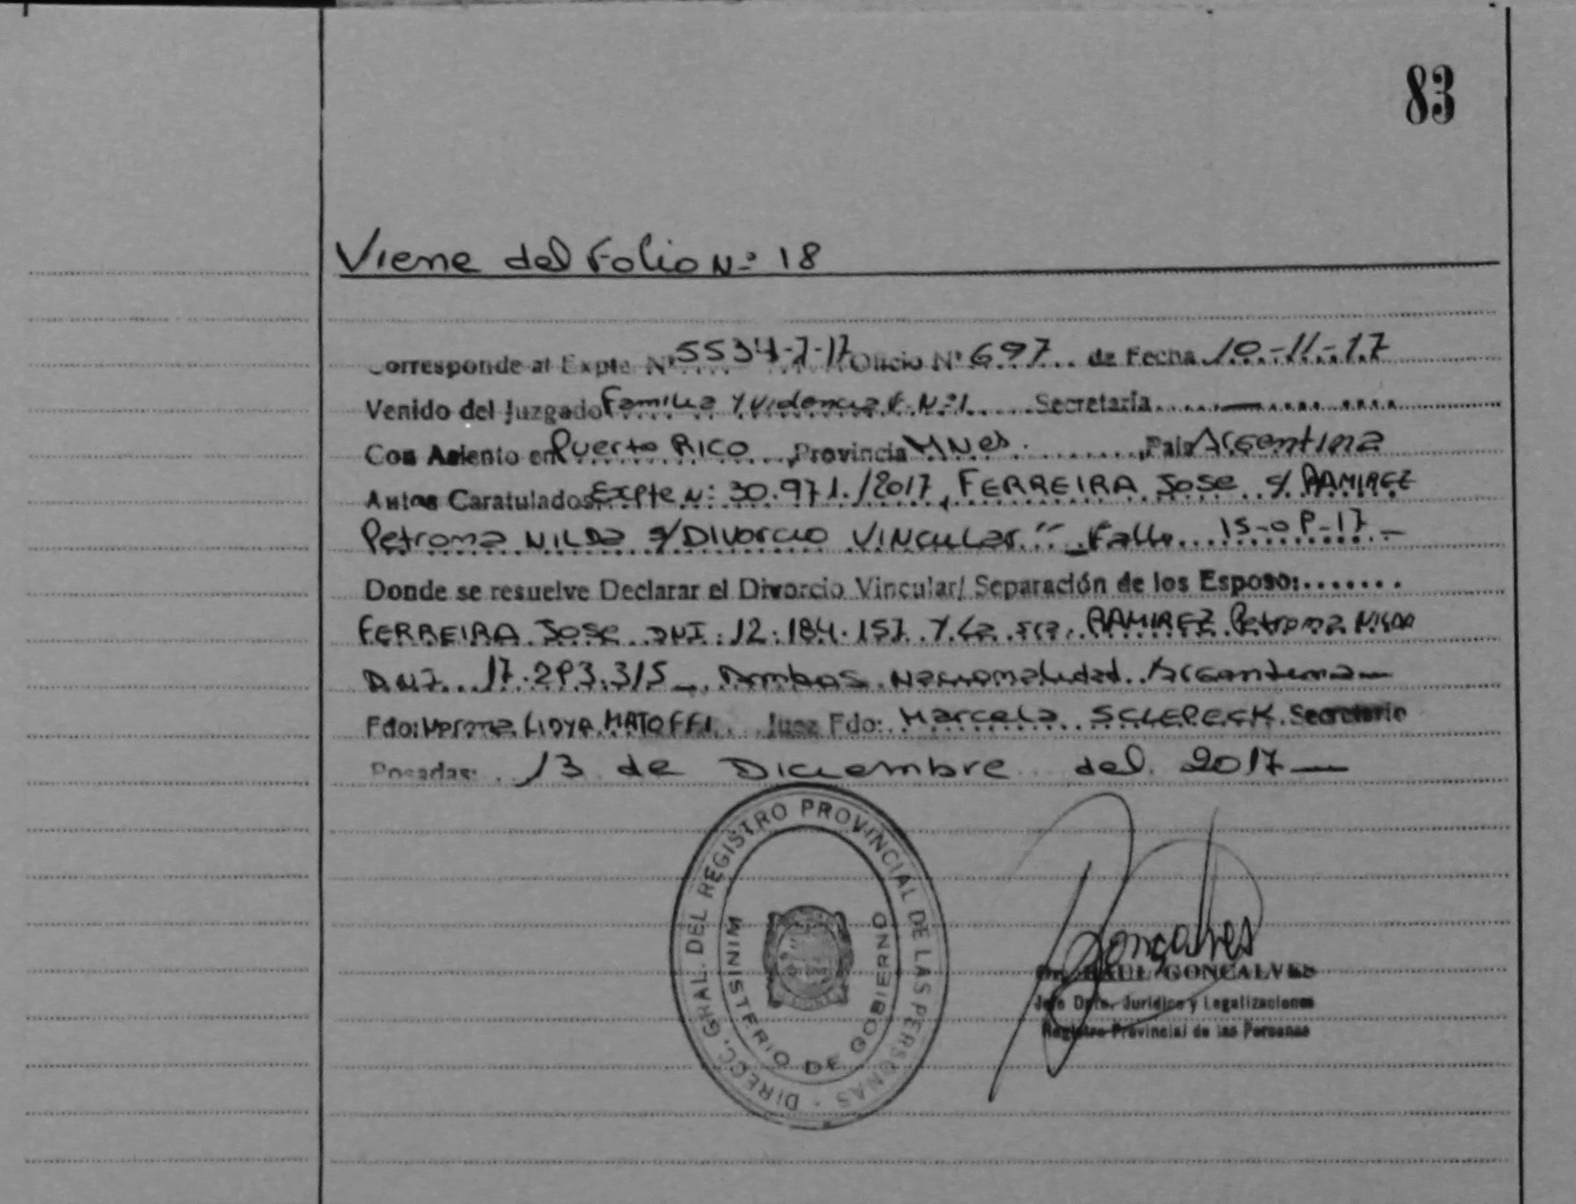 83
Viene del Folio N° 18
Corresponde al Expte N° 5534-7-17 Oficio N° 697 de Fecha 10-11-17
Venido del Juzgado Familia y Violencia F. N°1 Secretaría —
Con Asiento en Puerto Rico, Provincia Mnes., País Argentina
Autos Caratulados Expte N: 30.971/2017, FERREIRA Jose c/ RAMIREZ
Petrona NILDA s/ DIVORCIO VINCULAR" - Fallo 15-09-17 -
Donde se resuelve Declarar el Divorcio Vincular/ Separación de los Esposo:.......
FERREIRA Jose DNI: 12.184.157 y La Sra. RAMIREZ Petrona NILDA
D.N.I. 17.293.315 - Ambos Nacionalidad Argentina -
Fdo: Lidya MATOFFI Juez Fdo: Marcela SCLEPECK Secretario
Posadas: 13 de Diciembre del 2017 —
DIRECC. GRAL. DEL REGISTRO PROVINCIAL DE LAS PERSONAS
MINISTERIO DE GOBIERNO
Goncalves
Dr. RAUL GONCALVES
Jefe Dpto. Jurídico y Legalizaciones
Registro Provincial de las Personas